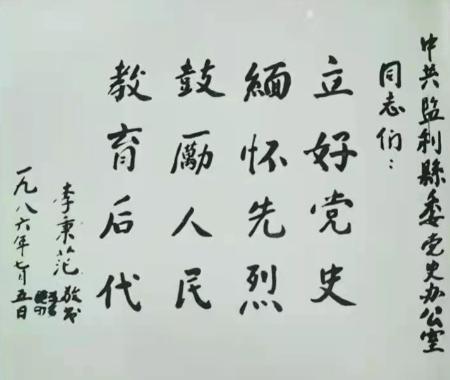 中共监利縣委党史办公室
同志们：
立好党史
緬怀先烈
鼓勵人民
教育后代
李秉范敬书
一九八六年七月五日